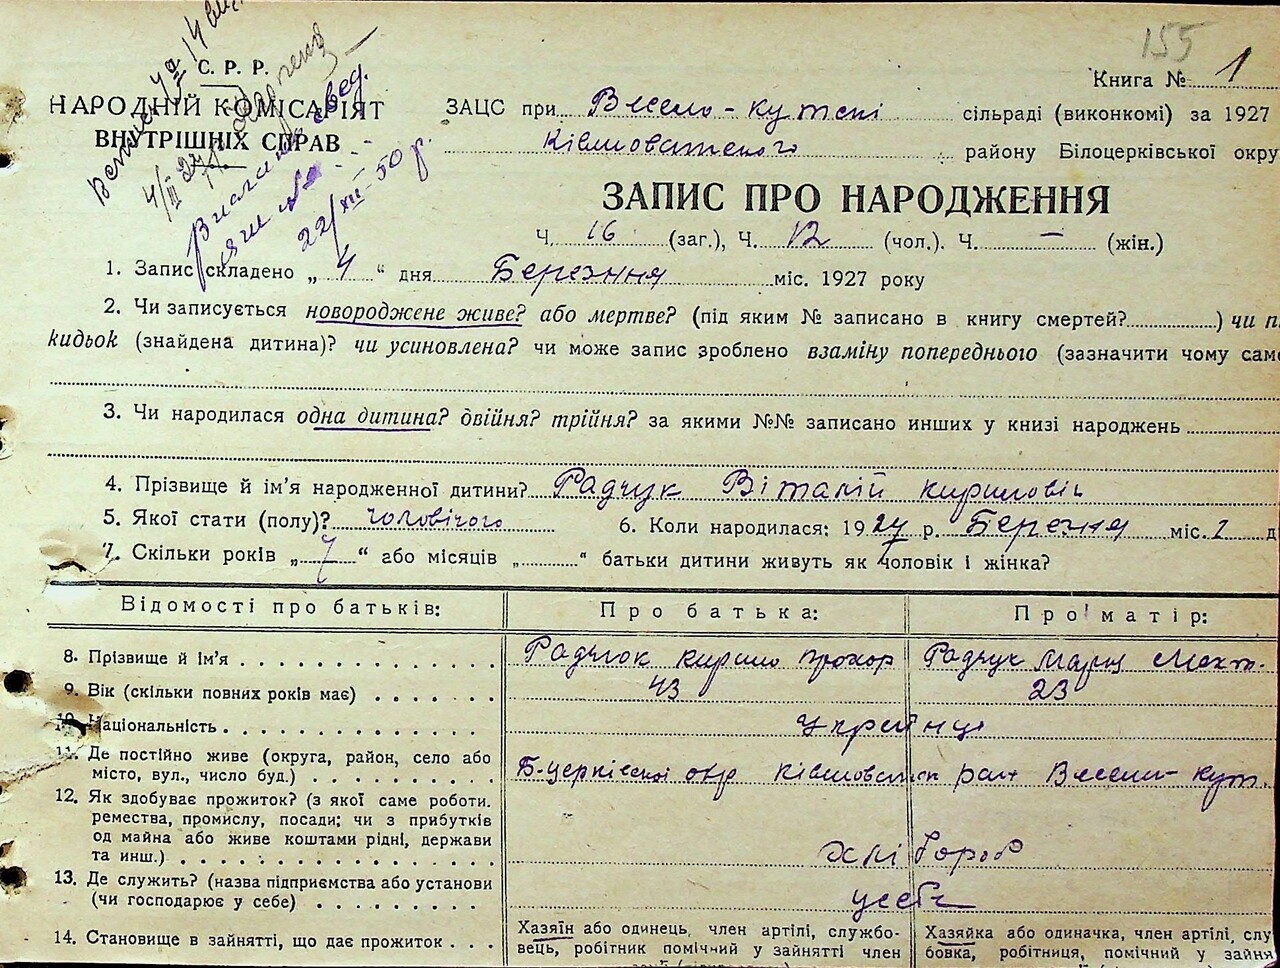 155
С. Р. Р.
НАРОДНІЙ КОМІСАРІЯТ
ВНУТРІШНІХ СПРАВ
22/XII-50 р.
Книга № 1
ЗАЦС при Весело-кутскі сільраді (виконкомі) за 1927
Ківшоватского району Білоцерківської окру
ЗАПИС ПРО НАРОДЖЕННЯ
Ч. 16 (заг.), Ч. 12 (чол.). Ч. — (жін.)
1. Запис складено „ 4 “ дня Березння міс. 1927 року
2. Чи записується новороджене живе? або мертве? (під яким № записано в книгу смертей?) чи п
кидьок (знайдена дитина)? чи усиновлена? чи може запис зроблено взаміну попереднього (зазначити чому саме
3. Чи народилася одна дитина? двійня? трійня? за якими №№ записано инших у книзі народжень
4. Прізвище й ім'я народженної дитини? Радчук Віталій Кирилович
5. Якої стати (полу)? чоловічого 6. Коли народилася: 1927 р. Березня міс. 2 д
7. Скільки років „ 7 “ або місяців „ “ батьки дитини живуть як чоловік і жінка?
Відомості про батьків: Про батька: Про матір:
8. Прізвище й ім'я Радчюк Кирило Прохор Радчук Мария
9. Вік (скільки повних років має) 43 23
10. Національність Українці
11. Де постійно живе (округа, район, село або
місто, вул., число буд.) Б-церківскої окр Ківшоватск рай Весели-кут.
12. Як здобуває прожиток? (з якої саме роботи.
ремества, промислу, посади; чи з прибутків
од майна або живе коштами рідні, держави
та инш.) хлібороб
13. Де служить? (назва підприємства або установи
(чи господарює у себе) усебе
14. Становище в зайнятті, що дає прожиток
Хазяїн або одинець, член артілі, службо- Хазяйка або одиначка, член артілі, слу
вець, робітник помічний у зайнятті член бовка, робітниця, помічний у зайня